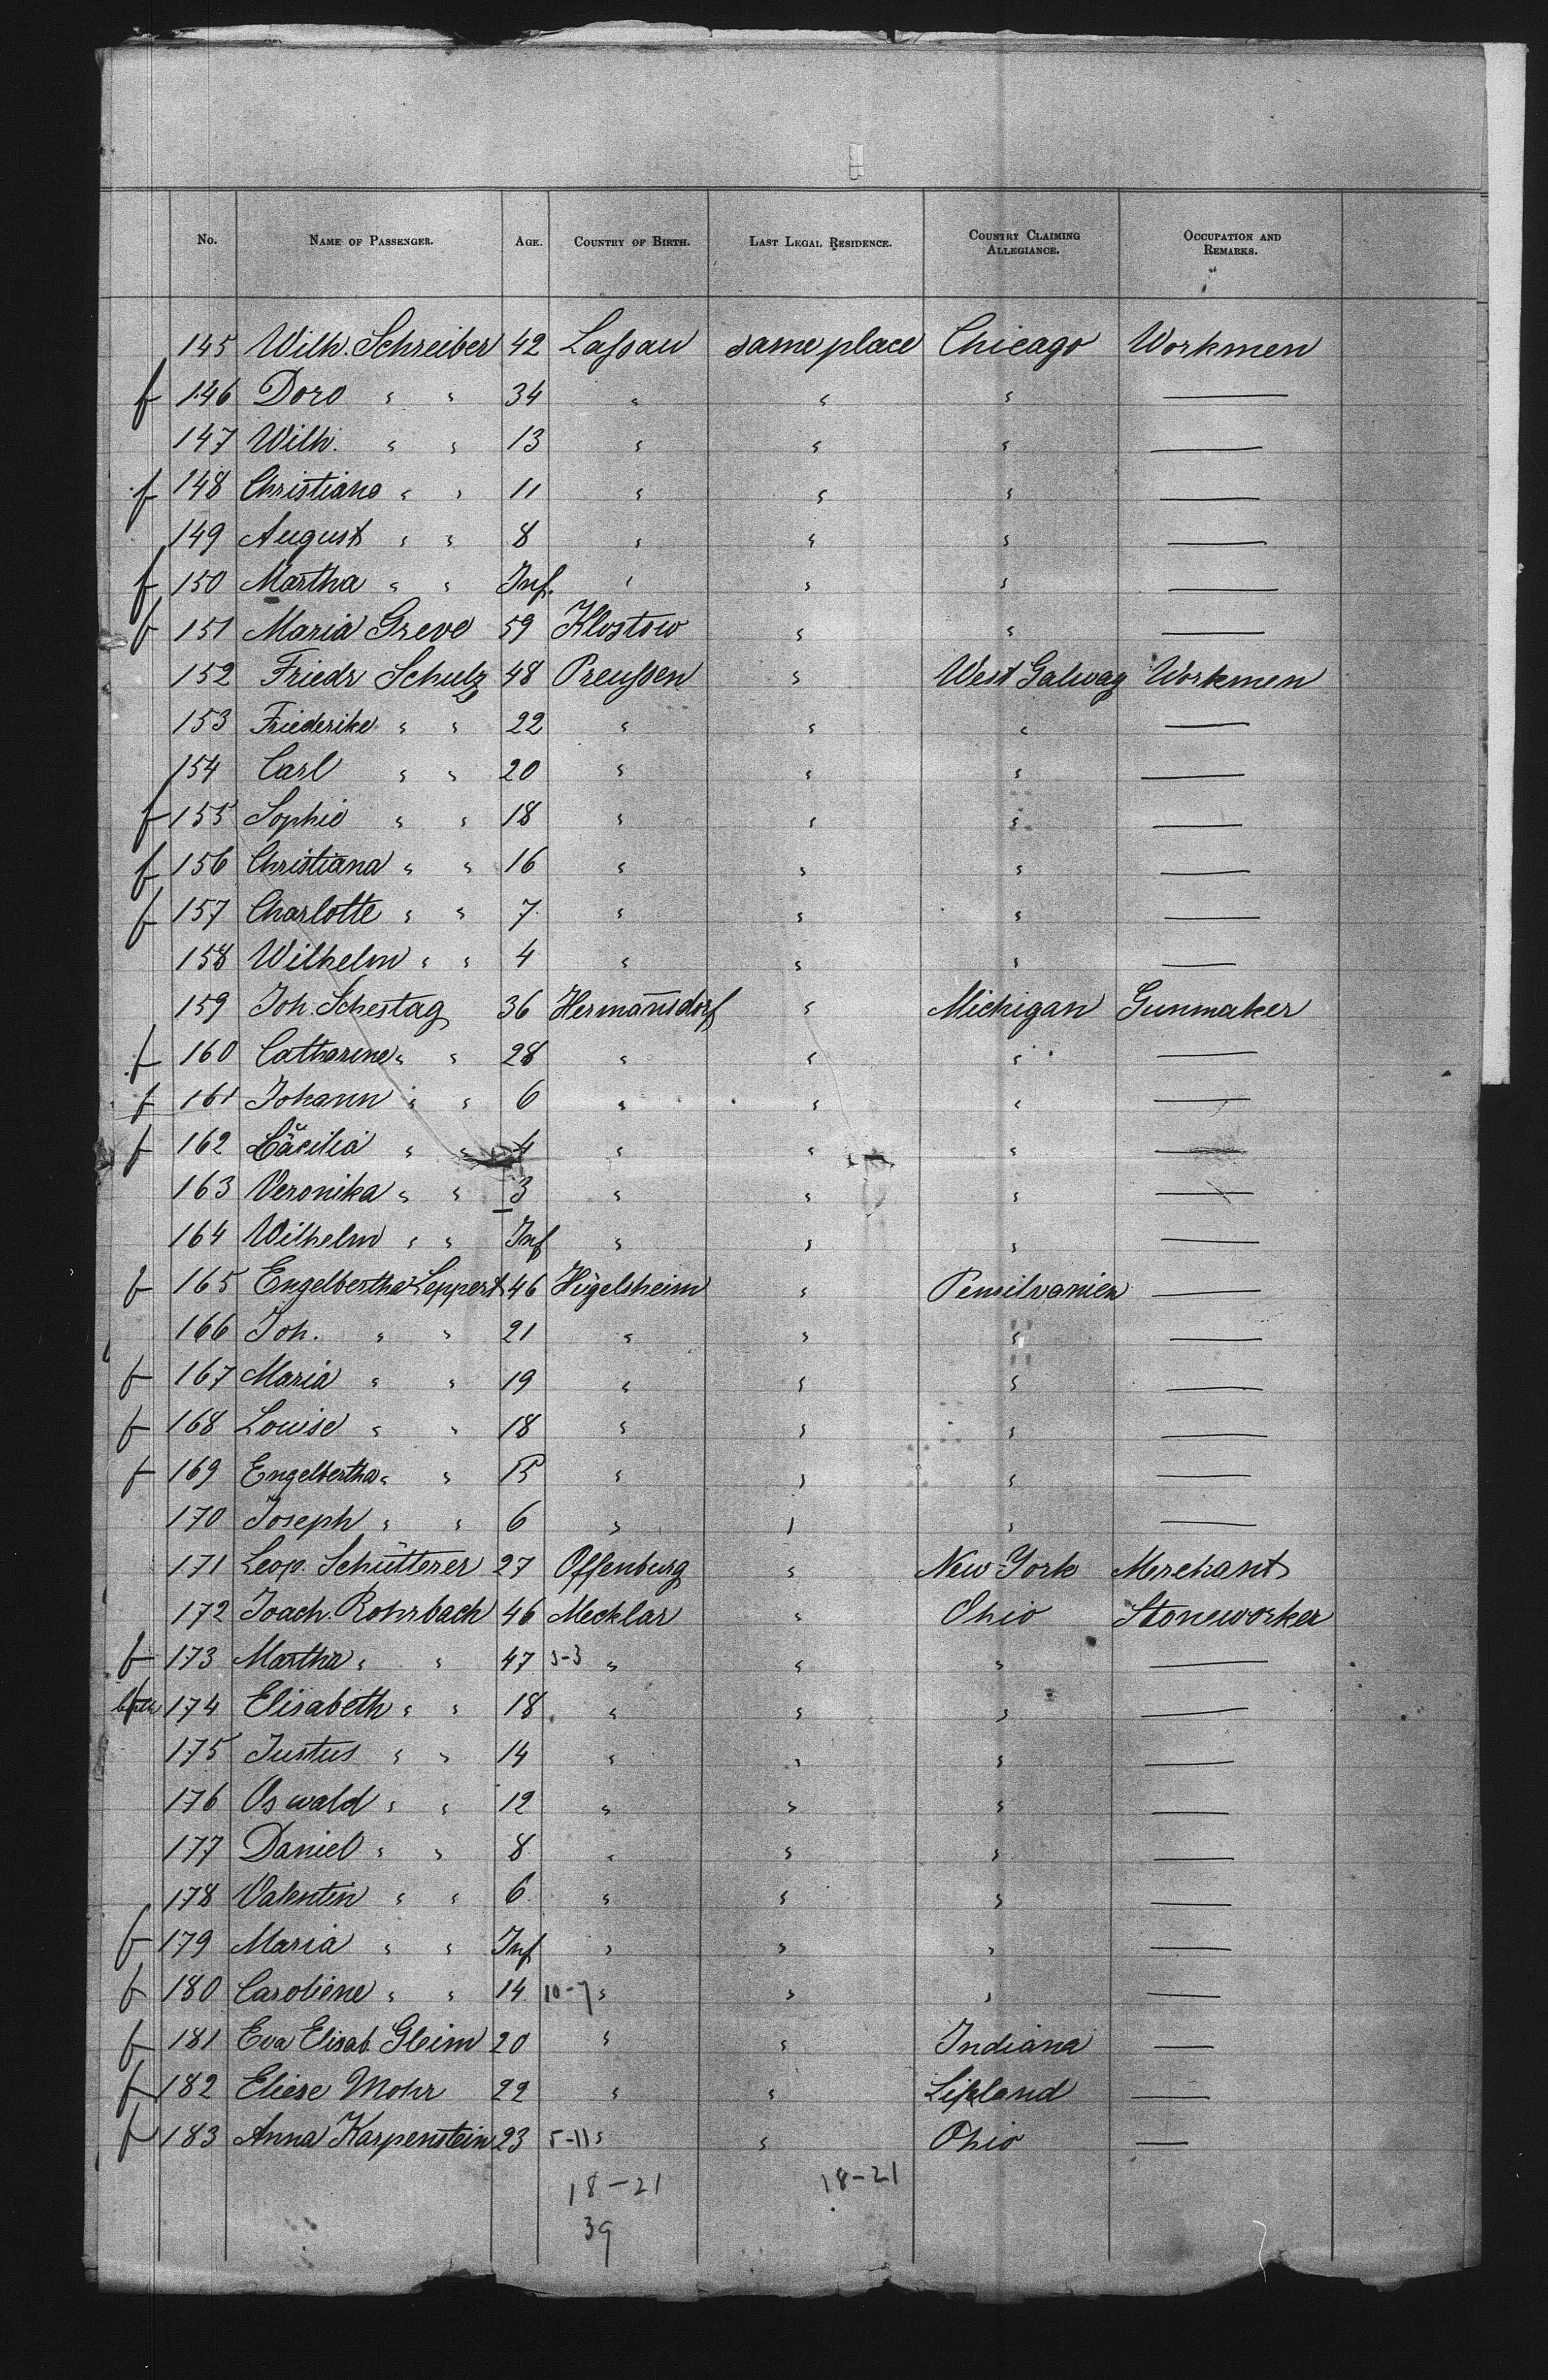 No. NAME OF PASSENGER. AGE. COUNTRY OF BIRTH. LAST LEGAL RESIDENCE. COUNTRY CLAIMING ALLEGIANCE. OCCUPATION AND REMARKS.
145 Wilh. Schreiber 42 Laſsau same place Chicago Workmen
f 146 Doro " " 34 " " " —
147 Wilh. " " 13 " " " —
f 148 Christiane " " 11 " " " —
149 August " " 8 " " " —
f 150 Martha " " Inf. " " " —
f 151 Maria Greve 59 Klostow " " —
152 Friedr Schulz 48 Preuſsen " West Galway Workmen
153 Friederike " " 22 " " " —
154 Carl " " 20 " " " —
f 155 Sophie " " 18 " " " —
f 156 Christiana " " 16 " " " —
f 157 Charlotte " " 7 " " " —
158 Wilhelm " " 4 " " " —
159 Joh. Schestag 36 Hermañsdorf " Michigan Gunmaker
f 160 Catharine " " 28 " " " —
f 161 Johann " " 6 " " " —
f 162 Cäcilia " " 4 " " " —
163 Veronika " " 3 " " " —
164 Wilhelm " " Inf " " " —
f 165 Engelbertha Leppert 46 Hügelsheim " Pensilvanien —
166 Joh. " " 21 " " " —
f 167 Maria " " 19 " " " —
f 168 Louise " " 18 " " " —
f 169 Engelbertha " " 15 " " " —
170 Joseph " " 6 " " " —
171 Leop. Schütterer 27 Offenburg " New-York Merchant
172 Joach. Rohrbach 46 Mecklar " Ohio Stoneworker
f 173 Martha " " 47 5-3 " " " —
174 Elisabeth " " 18 " " " —
175 Justus " " 14 " " " —
176 Oswald " " 12 " " " —
177 Daniel " " 8 " " " —
178 Valentin " " 6 " " " —
f 179 Maria " " Inf " " " —
f 180 Caroliene " " 14 10-7 " " " —
f 181 Eva Elisab. Gleim 20 " " Indiana —
f 182 Eliese Mohr 22 " " —
f 183 Anna Karpenstein 23 5-11 " " Ohio —
18-21 18-21
39